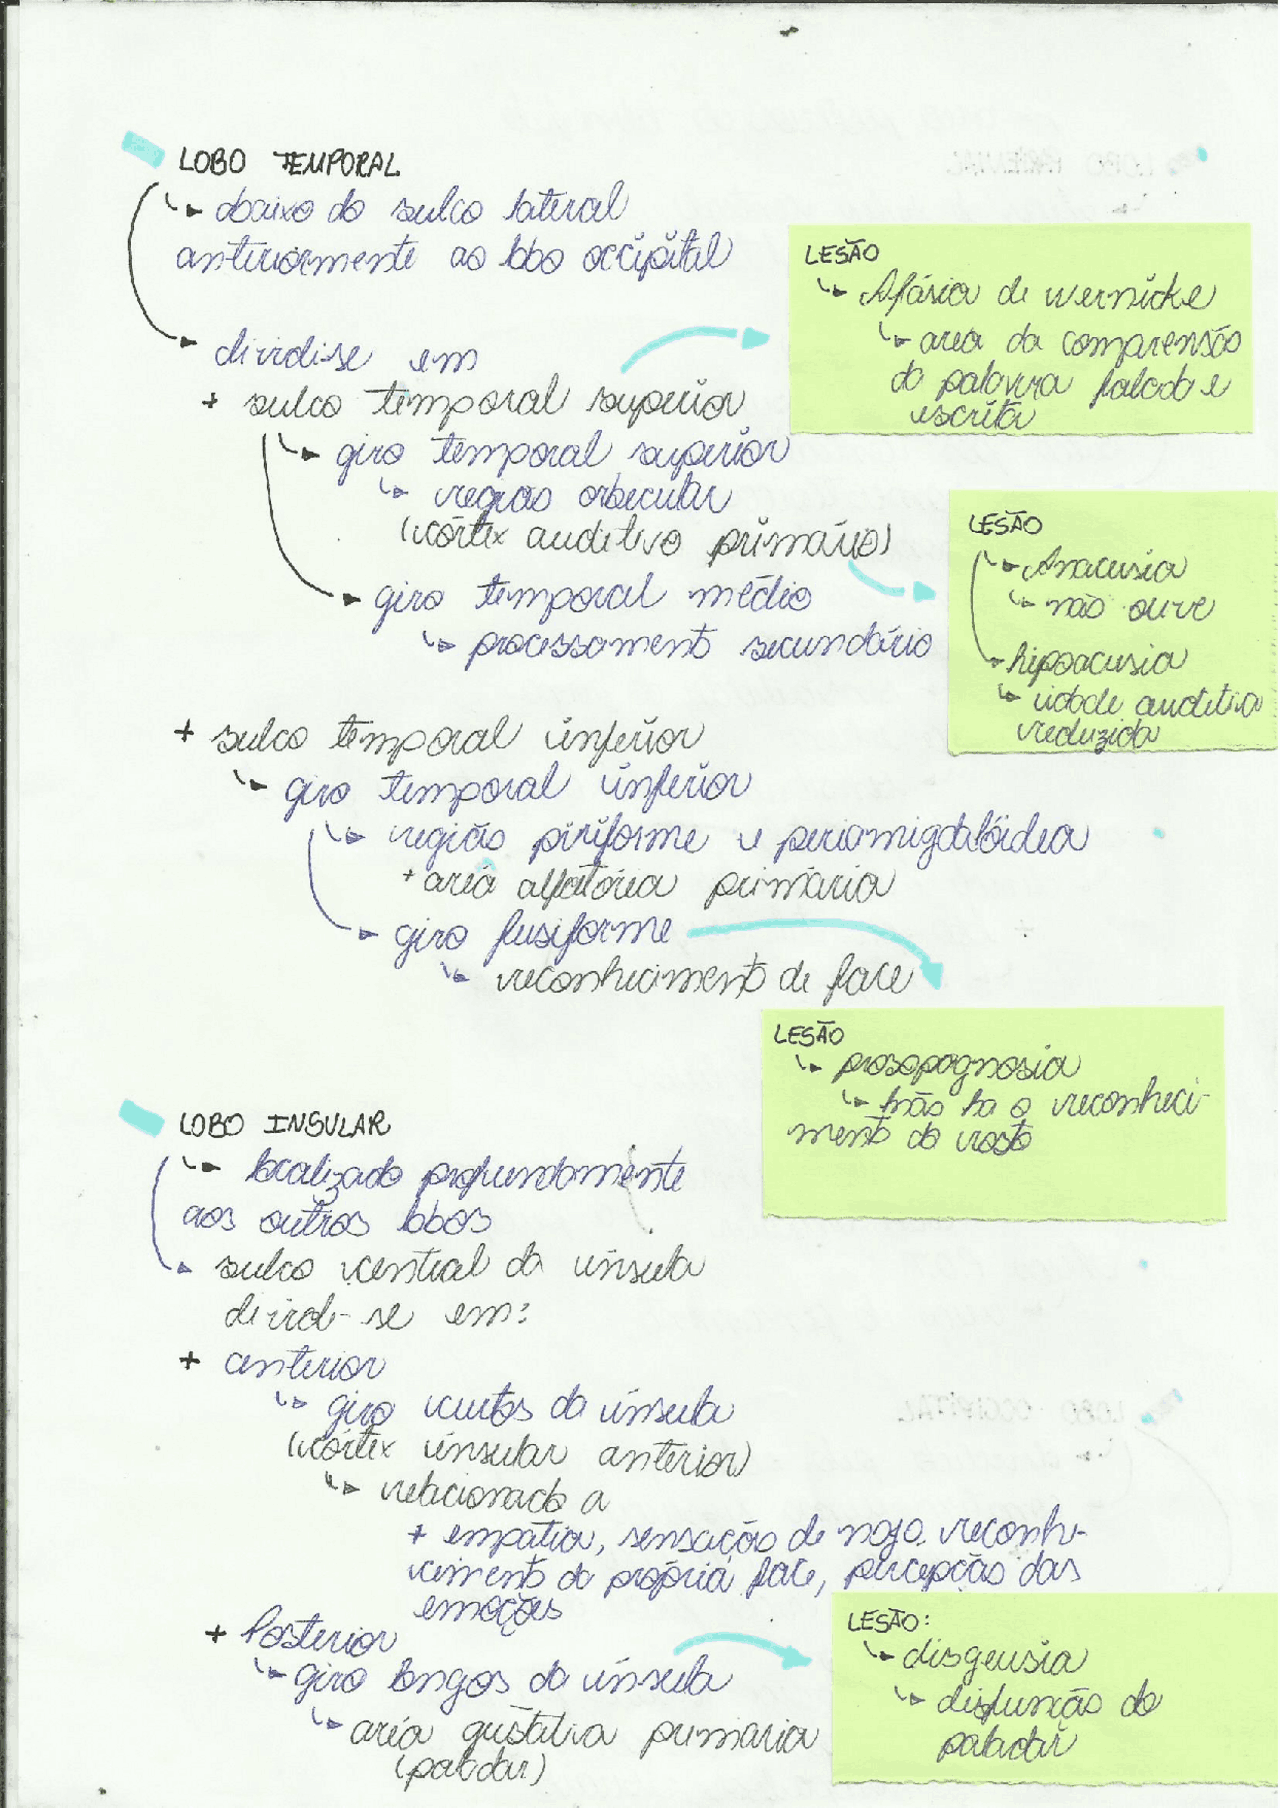 LOBO TEMPORAL
abaixo do sulco lateral
anteriormente ao lobo occipital
dividi-se em
+ sulco temporal superior
giro temporal superior
região orbecular
(córtex auditivo primário)
giro temporal médio
processamento secundário
LESÃO
Afásia de wernicke
area da comprensão
da palavra falada e
escrita
LESÃO
Anacusia
não ouve
hipoacusia
auditiva
reduzida
+ sulco temporal inferior
giro temporal inferior
região piriforme e periamigdalóidea
+ area olfatória primária
giro fusiforme
reconhecimento de face
LESÃO
prosopagnosia
não ha o reconheci-
mento do rosto
LOBO INSULAR
localizado profundamente
aos outros lobos
sulco central da ínsula
dividi-se em:
+ anterior
giro curtos da ínsula
(córtex insular anterior)
relacionado a
+ empatia, sensação de nojo, reconhe-
cimento da própria face, percepção das
emoções
+ Posterior
giro longos da ínsula
area gustativa primaria
(paladar)
LESÃO:
disgeusia
disfunção do
paladar